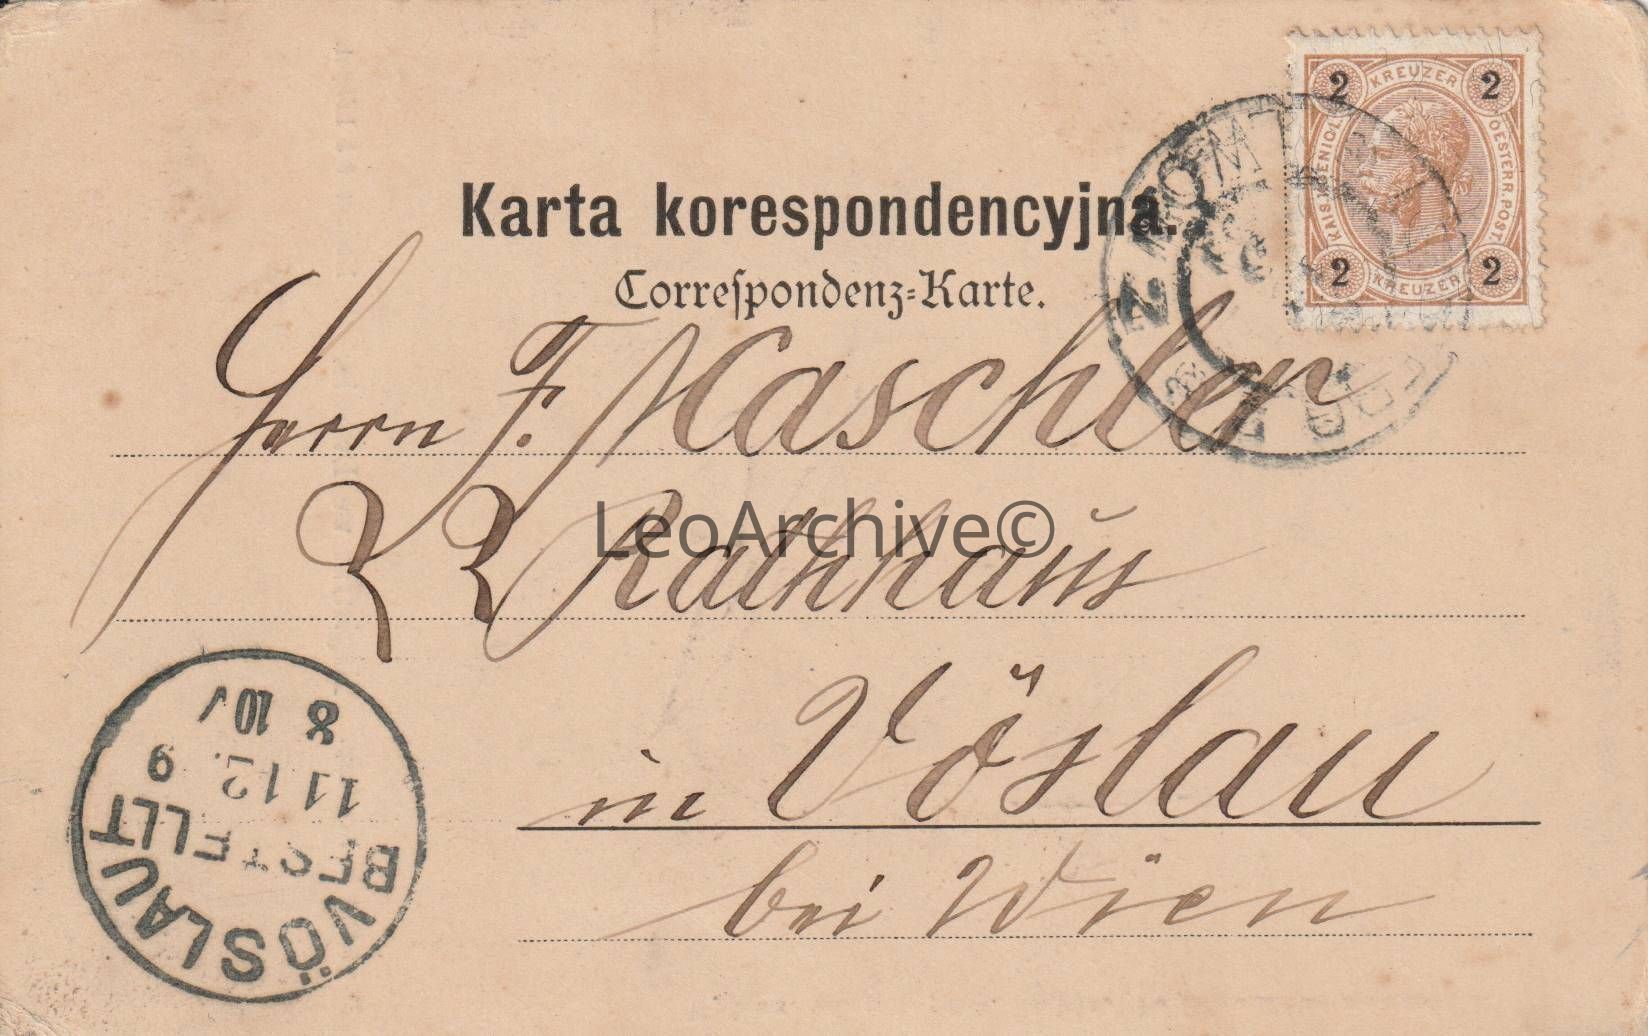 2 KREUZER 2
KAIS. KOENIGL. OESTERR. POST
2 KREUZER 2
Karta korespondencyjna.
Correſpondenz-Karte.
Herrn F. Maschler
Rathhaus
LeoArchive©
in Vöslau
bei Wien
VÖSLAU
BESTELLT
11 12. 9
8 10V